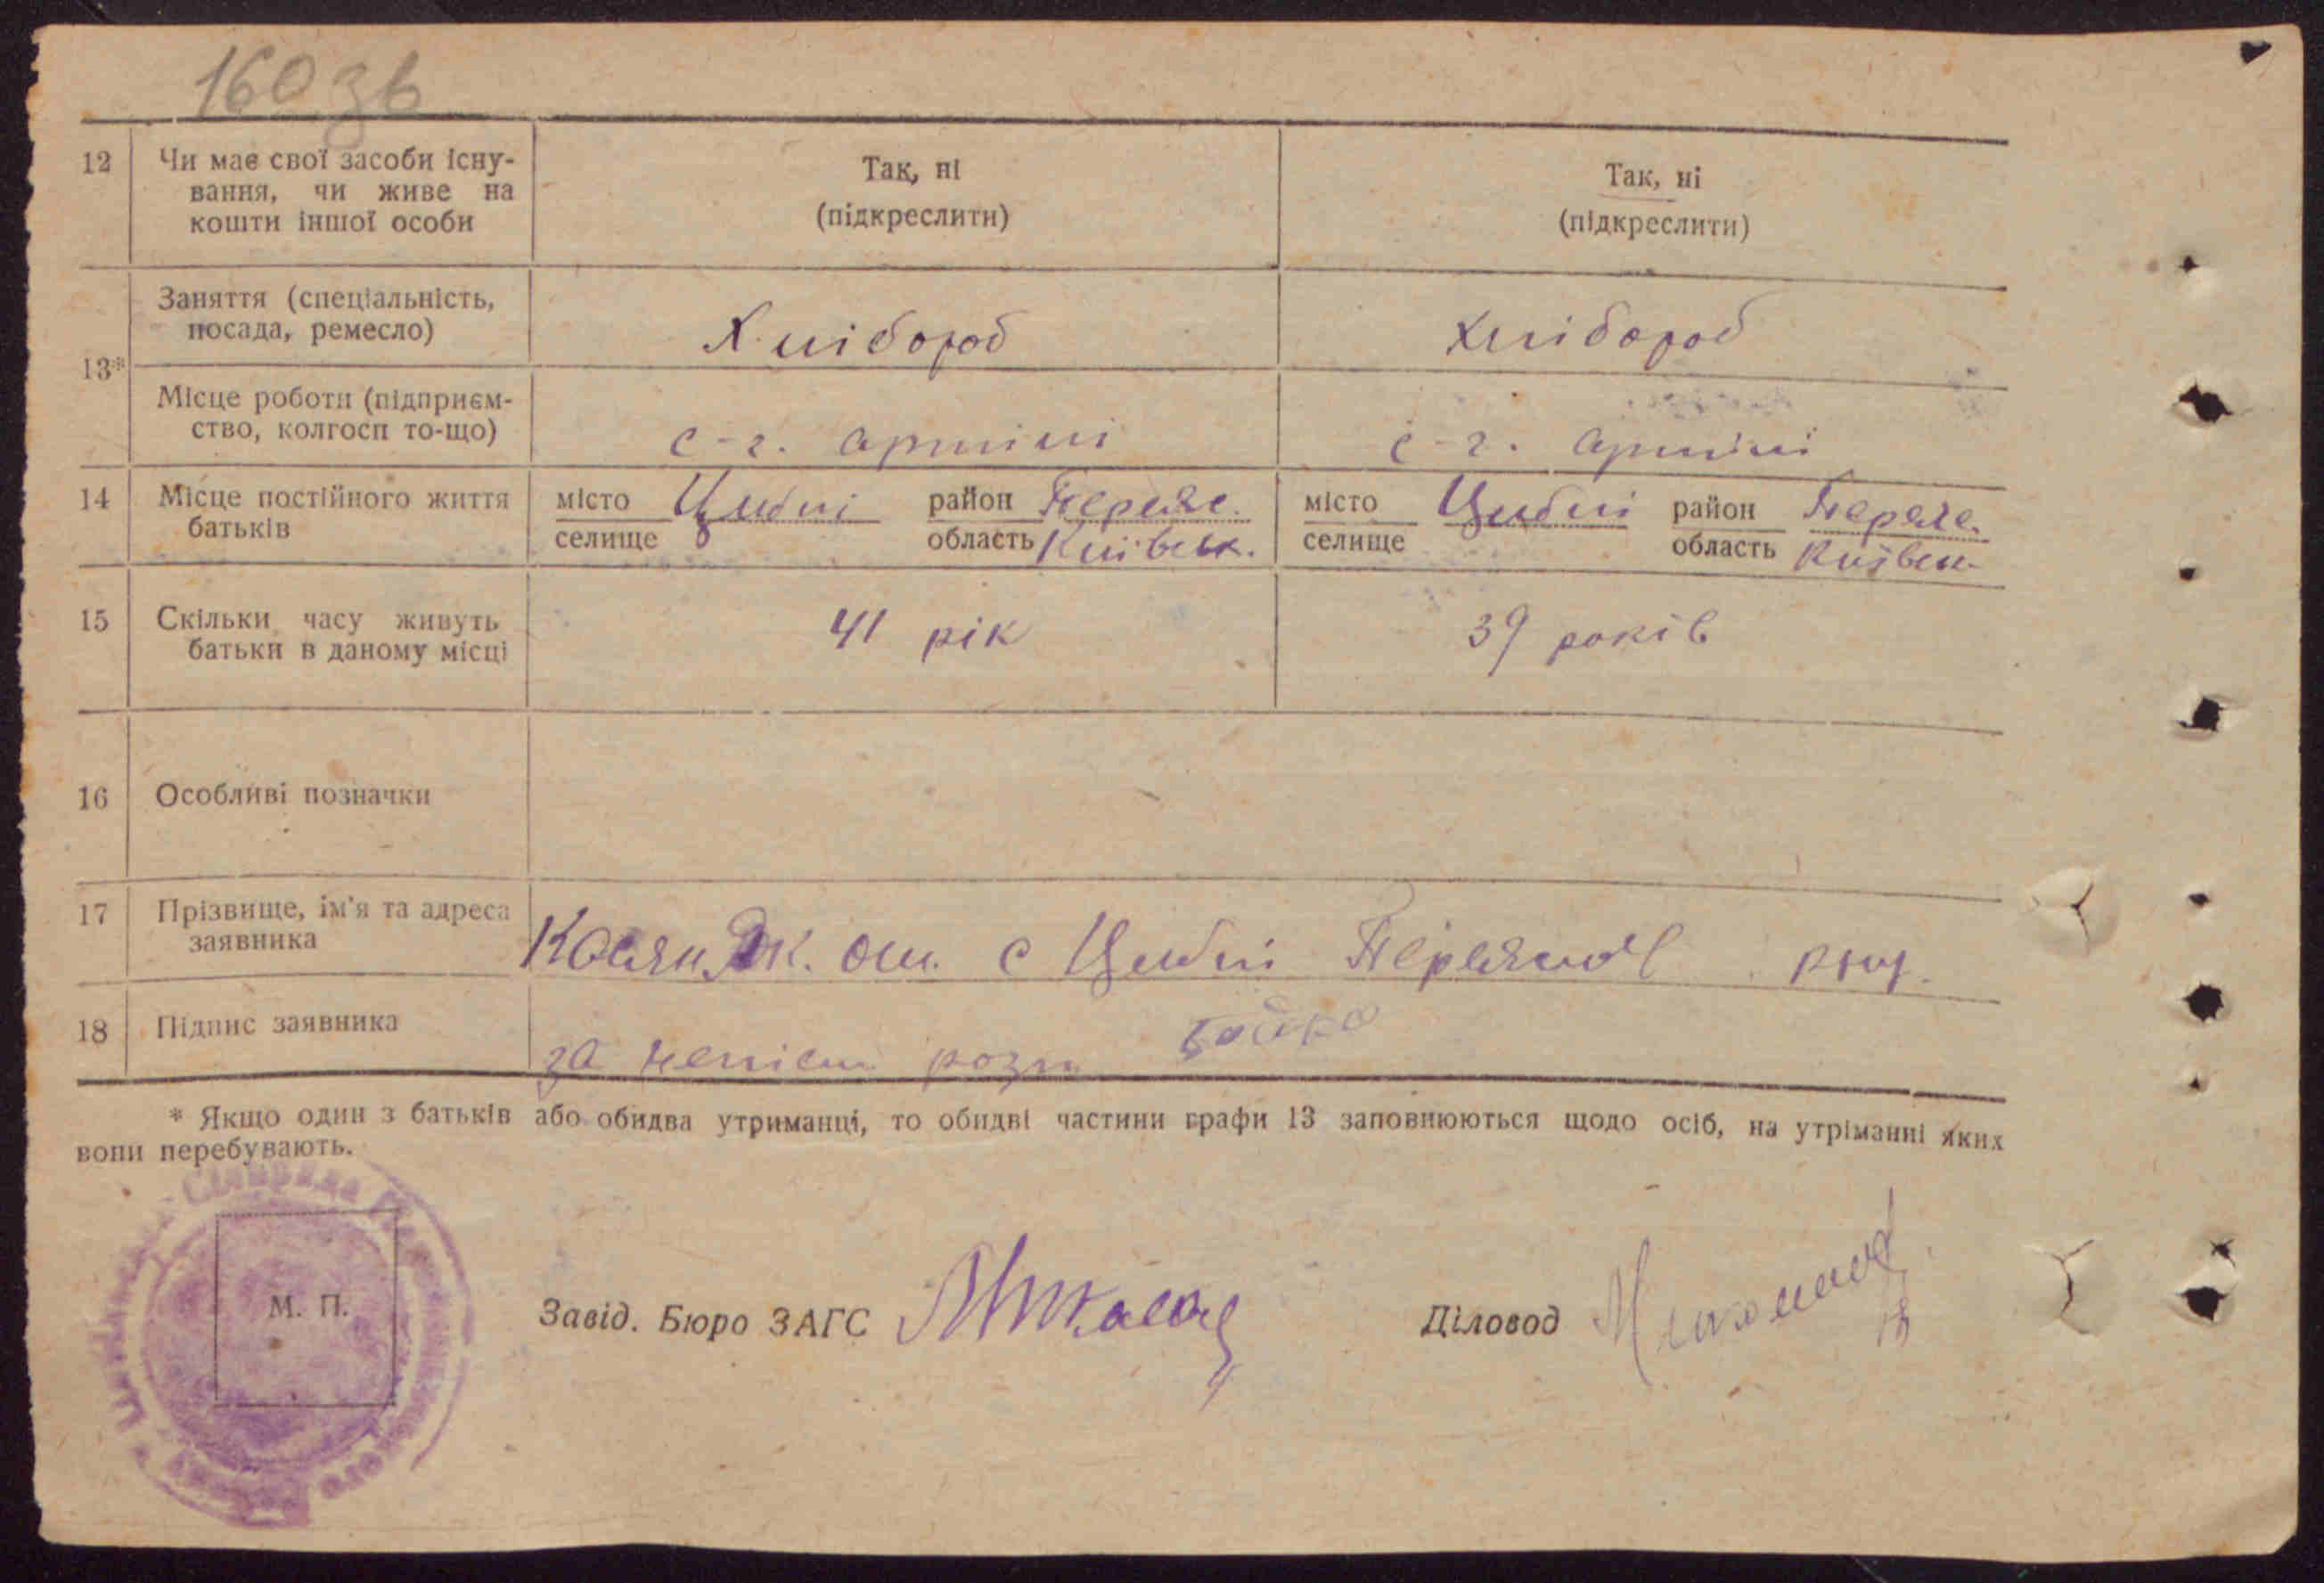 160 зв
12 Чи має свої засоби існу- Так, ні Так, ні
вання, чи живе на (підкреслити) (підкреслити)
кошти іншої особи
13* Заняття (спеціальність, Хлібороб Хлібороб
посада, ремесло)
Місце роботи (підприєм- с-г. артілі с-г. артілі
ство, колгосп то-що)
14 Місце постійного життя місто Циблі район Переяс. місто Циблі район Переяс.
батьків селище область Київськ. селище область Київськ
15 Скільки часу живуть 41 рік 39 років
батьки в даному місці
16 Особливі позначки
17 Прізвище, ім'я та адреса Касян Як. с Циблі Переяслов
заявника
18 Підпис заявника за непісм розп Бойко
* Якщо один з батьків або обидва утриманці, то обидві частини графи 13 заповнюються щодо осіб, на утріманні яких
вони перебувають.
Сільрада
М. П.
Завід. Бюро ЗАГС Діловод